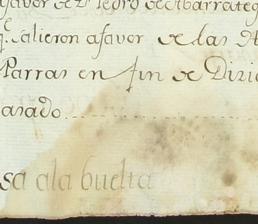 afavor de Dⁿ Pedro de Ibarrateg
qᵉ. salieron afavor de las
Parras en fin de Dizi
asado
sa ala buelta